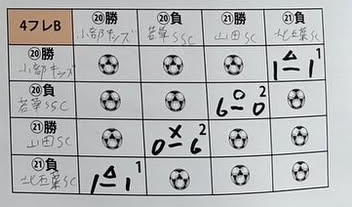 4フレB ⑳勝 ⑳負 ㉑勝 ㉑負
小部キッズ 若草SSC 山田SC 北五葉SC
⑳勝
小部キッズ △ 1
1-1
⑳負
若草SSC ○ 2
6-0
㉑勝
山田SC × 2
0-6
㉑負
北五葉SC △ 1
1-1